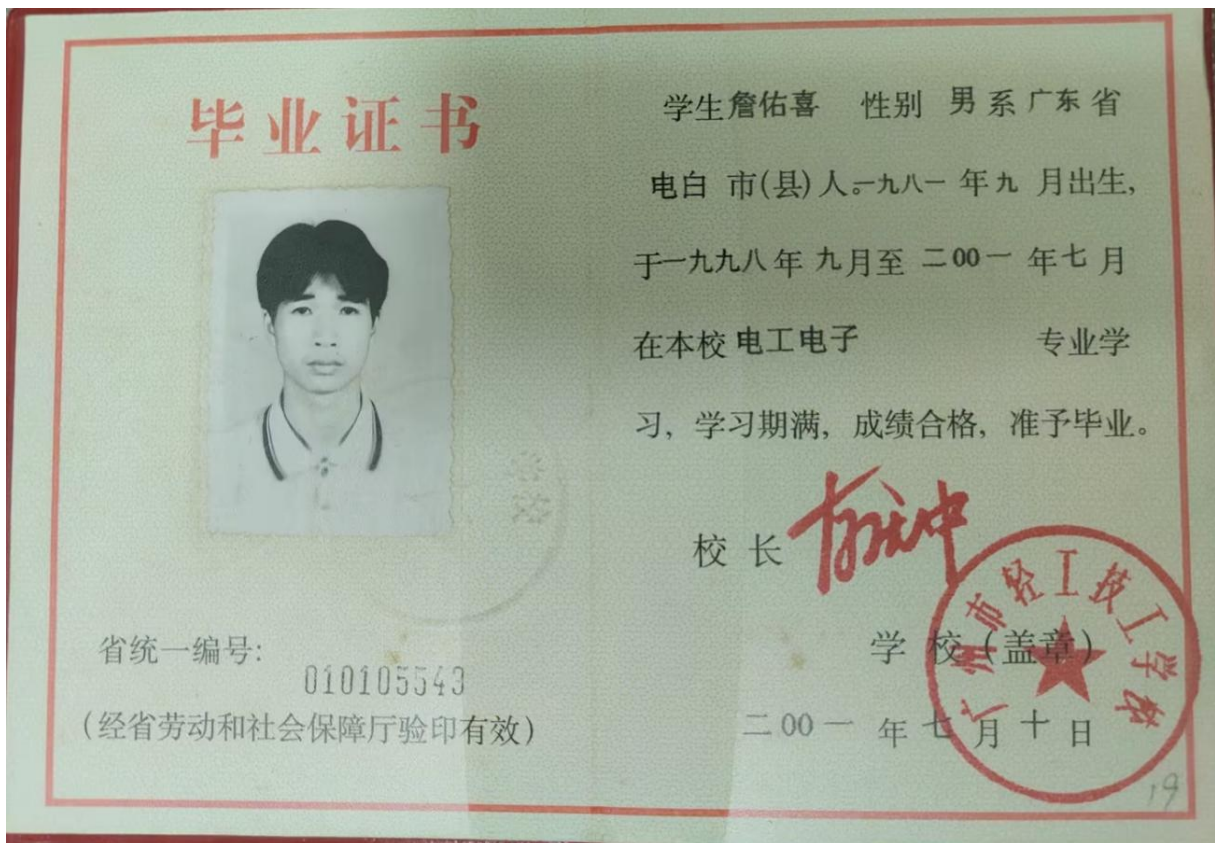 毕业证书
学生詹佑喜 性别 男 系 广东 省
电白 市(县)人。一九八一 年 九 月出生,
于一九九八年 九月至 二00一 年七月
在本校 电工电子 专业学
习, 学习期满, 成绩合格, 准予毕业。
校 长
广州市轻工技工学校
学 校 (盖章)
二00一 年 七 月 十 日
省统一编号:
010105543
(经省劳动和社会保障厅验印有效)
学校
19